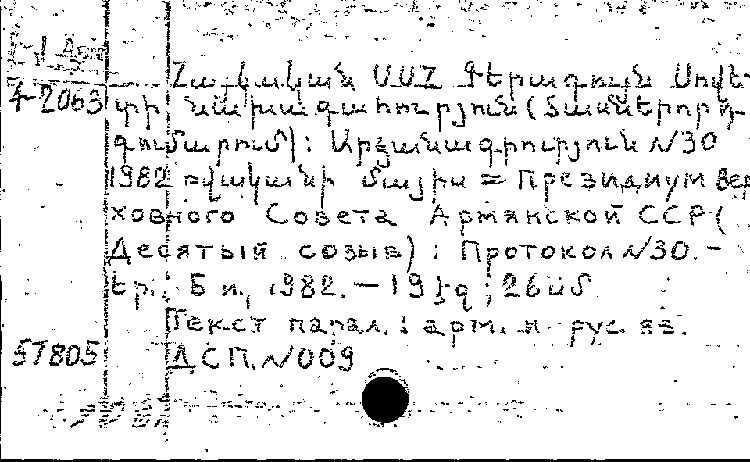 Հայկական ՍՍՀ Գերագույն Սովե-
4-2063 տի նախագահություն (Տասներորդ
գումարում): Արձանագրություն N30
1982 թվականի մայիս = Президиум Вер
ховного Совета Армянской ССР (
Десятый созыв): Протокол N30. –
Եր.: Б и., 1982. – 19 էջ; 26 սմ
Текст парал.: арм. и рус. яз.
57805 ДСП. N009